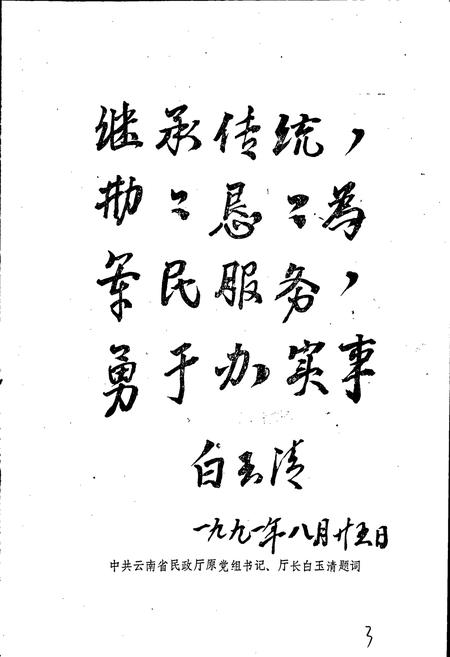 继承传统，
勤〻恳〻为
军民服务，
勇于办实事
白玉清
一九九一年八月廿五日
中共云南省民政厅原党组书记、厅长白玉清题词
3